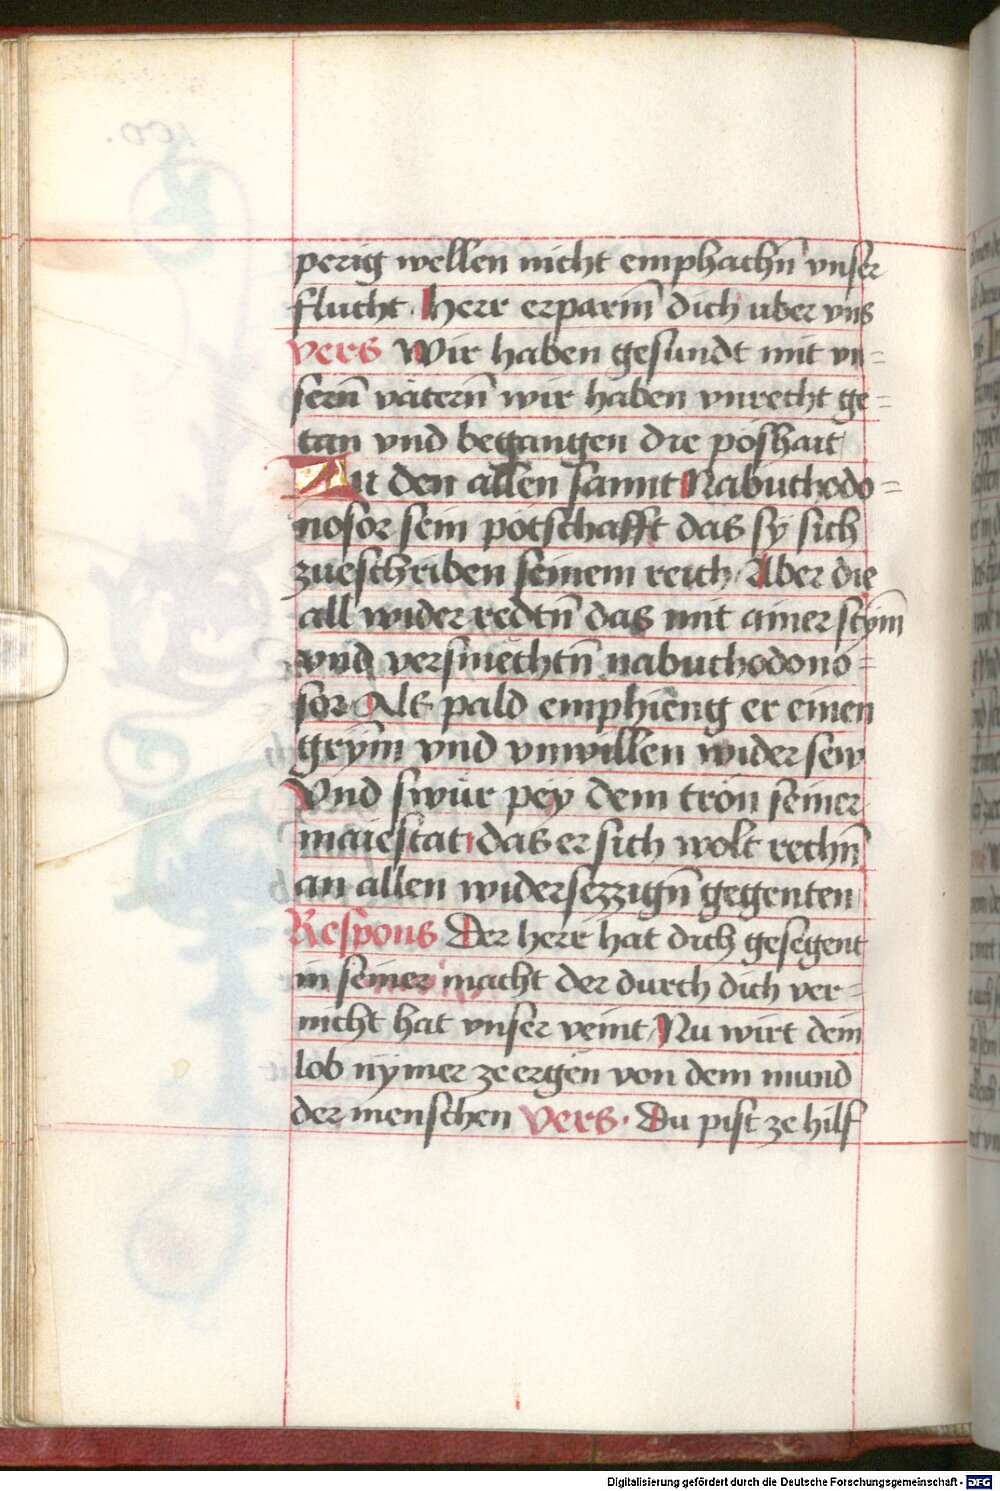 perig wellen nicht emphachn̄ vnser
flucht · Herr erparm̄ dich uber vns
Vers Wir haben gesundt mit vn=
sern̄ vätern̄ wir haben vnrecht ge=
tan vnd begangen die poshait
Zu den allen sannt Nabuchodo=
nosor sein potschafft das sÿ sich
zueschriben seinem reich / Aber die
all wider redtn̄ das mit ainer stym̄
vnd versmëchtn̄ nabuchodono=
sor · Als pald emphieng er einen
grÿm̄ vnd vnwillen wider sew
Vnd swür pey dem trön seiner
maiestat das er sich wolt rechn̄
an allen widersezzign̄ gegenten
Respons Der herr hat dich gesegent
in seiner macht der durch dich ver=
nicht hat vnser veint / Nu wirt dein
lob nÿmer zeergen von dem mund
der menschen Vers · Du pist ze hilf
Digitalisierung gefördert durch die Deutsche Forschungsgemeinschaft - DFG